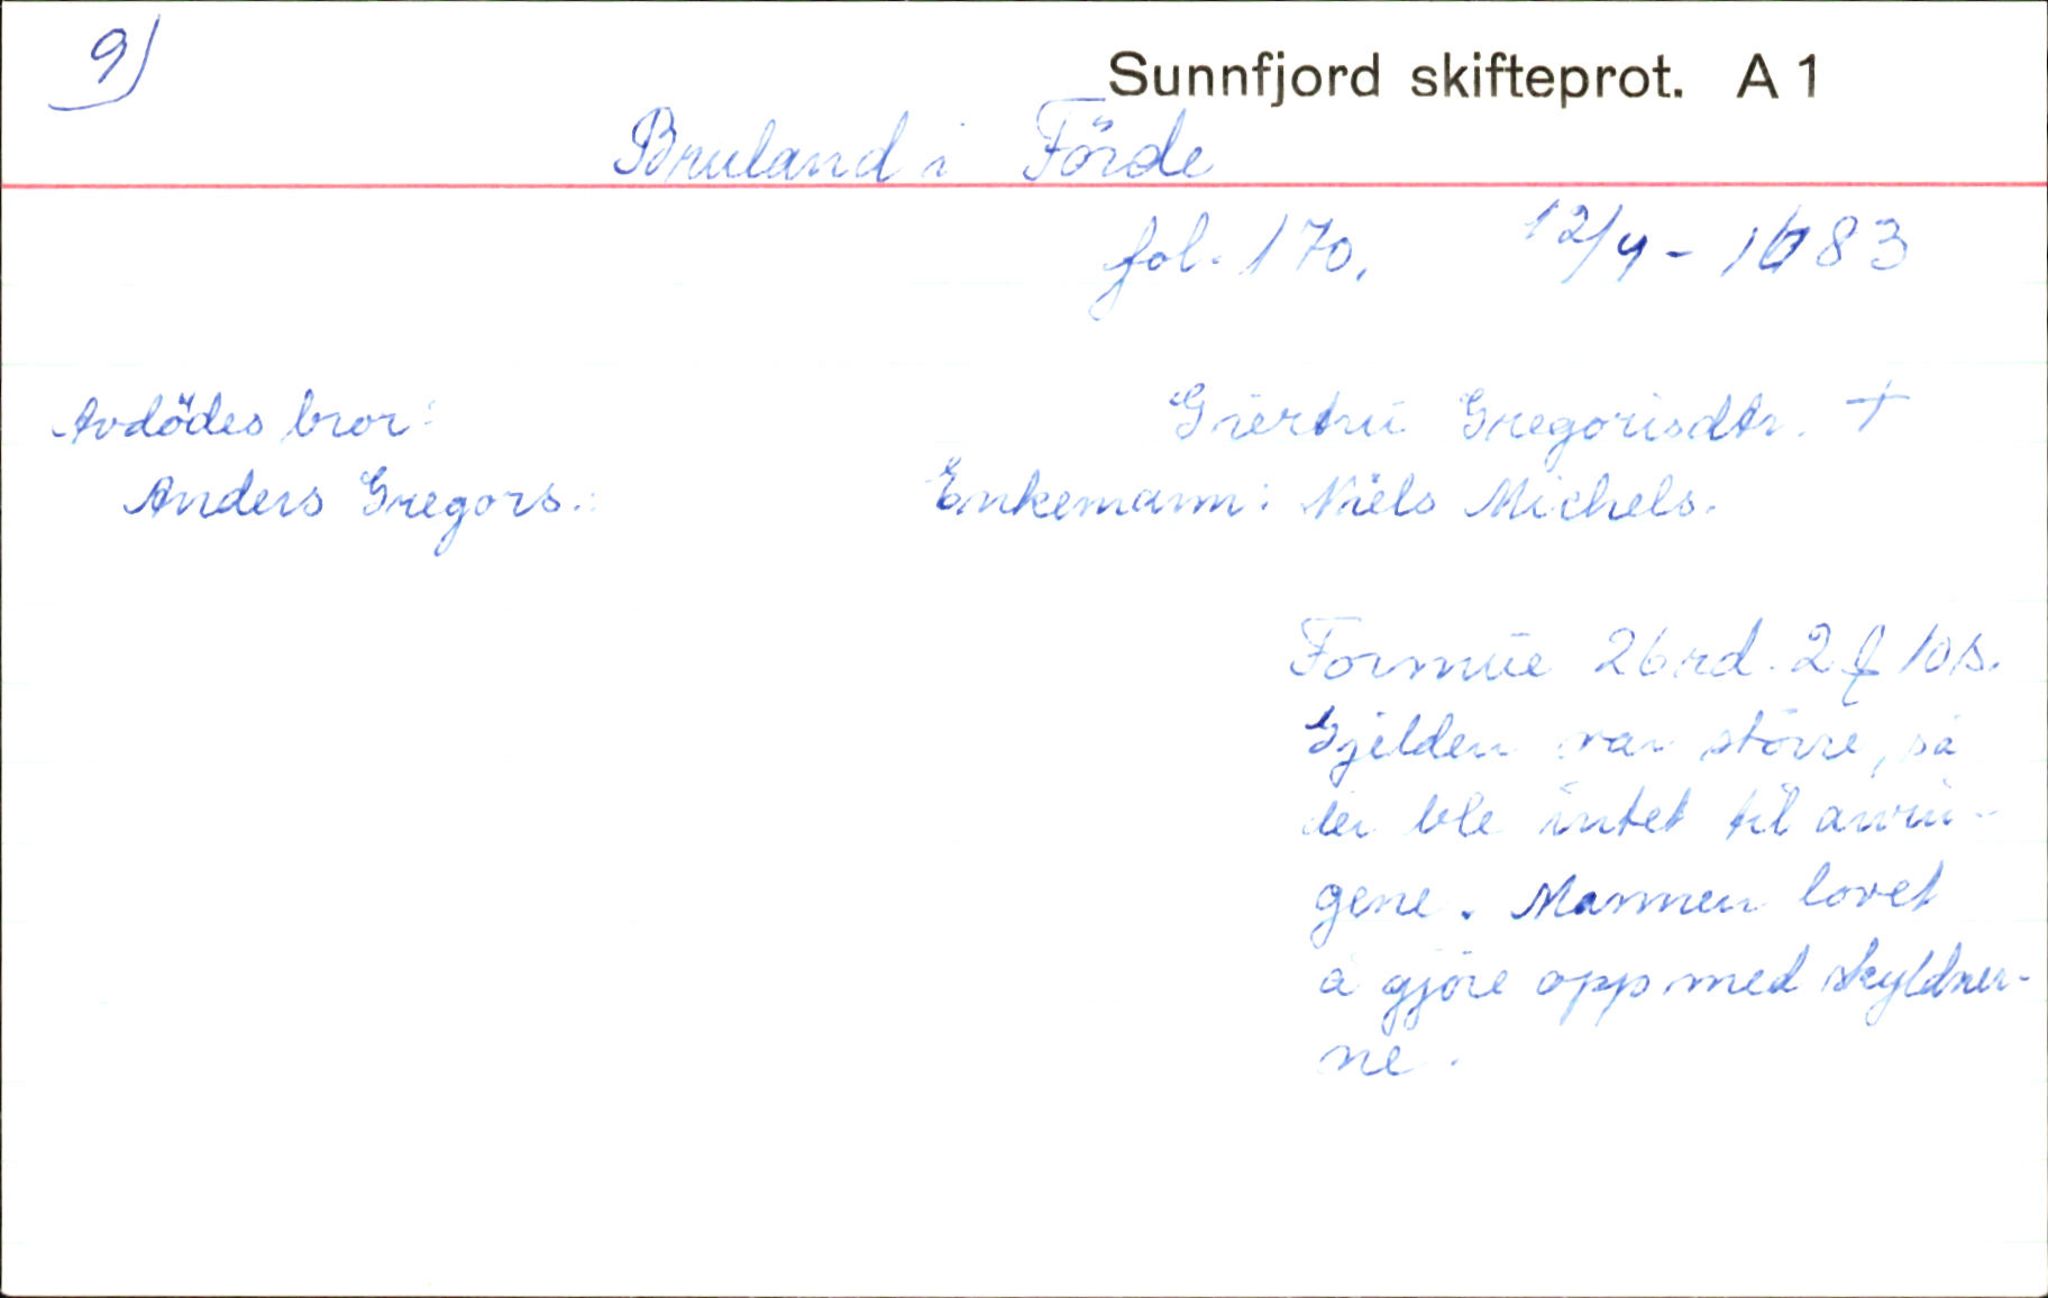 9)
Sunnfjord skifteprot. A 1
Bruland i Förde
fol. 170. 12/4 - 1683
Avdödes bror:
Giertrü Gregorisdtr. +
Anders Gregors.:
Enkemann: Niels Michels.
Formüe 26 rd. 2 10 s.
Gjelden var större, så
der ble intet til arvin-
gene. Mannen lovet
å gjöre opp med skyldner-
ne.